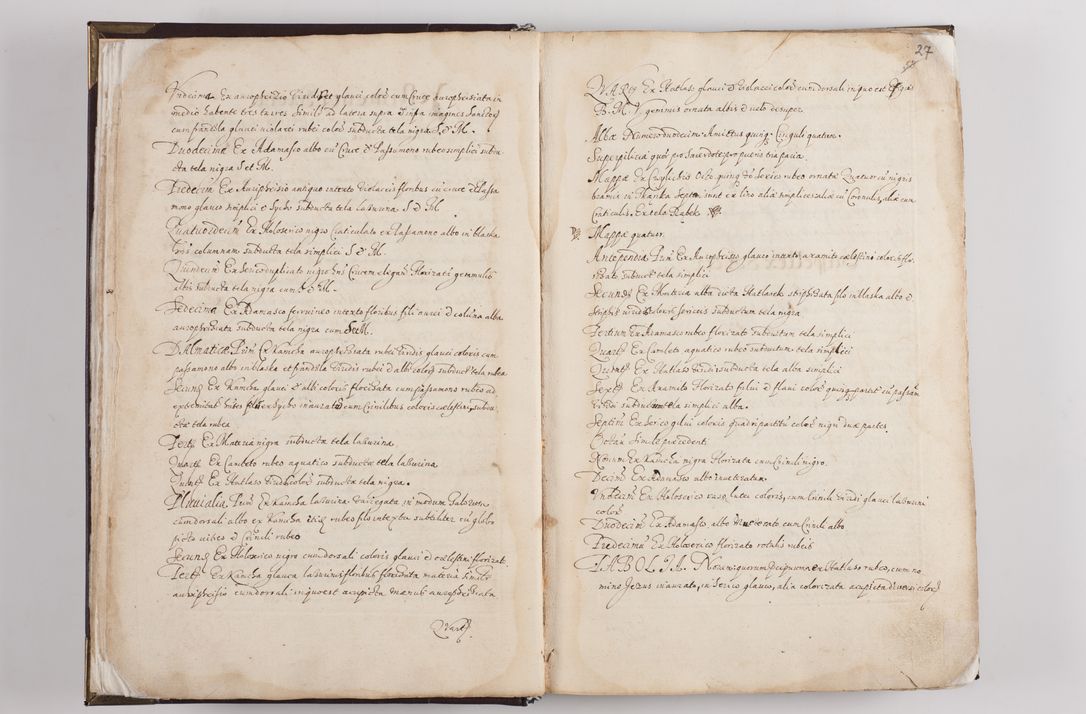 Undecima Ex auriphrisio viridis et glauci coloris cum Cruce auriphrisiata in
medio habente tres stares, simili ad latera supra et infra imagines Sanctor
cum frandzla glauci violacei rubei coloris subducta tela nigra S. et M.
Duodecima Ex Adamasco albo cum Cruce ex Passamono rubeo simplici subdu
cta tela nigra S et M.
Tredecima Ex Auriphrisio antiquo intexto violaceis floribus cum cruce ex Passa
mono glauco simplici et Sycho subducta tela lasurina S. et M
Quatuordecima Ex Holoserico nigro Craticulato ex Passamono albo in blaska
hns columnam subducta tela simplici S. et M.
Quindecima Ex Serico duplicato nigro hns Crucem elegan. florizata gemmulis
albis subducta tela nigra cum S. et M.
Sedecima Ex Adamasco ferruineo intexto floribus fili aurei et coluna alba
auriphrisiata subducta tela nigra cum S et M.
Dalmaticae Prima Ex Kamcha auriphrisiata rubei viridis glauci coloris cum
passamono albo in blaska et frandzla viridis rubei et albi coloris subducta tela rubea
Secunda Ex Kamcha glauci et albi coloris florisata cum passamono rubeo ad
extremitates hntes fila ex Sycho inaurato cum Crinilibus coloris caelestini, subdu
cta tela rubea
Tertia Ex Materia nigra subducta tela lasurina
Quarta Ex Camleto rubeo aquatico subducta tela lasurina
Quinta Ex Hatlaso viridi coloris subducta tela nigra.
Pluvialia Primum Ex Kamcha lasurina variegata in modum
cum dorsali albo ex Kamcha rubeo filo intexta subtiliter cum globo
picto vibeo et Crinili rubeo
Secundum Ex Holoserico nigro cum dorsali coloris glauci et caelestini florizat.
Tertium Ex Kamcha glauca lasurinis floribus floridata materia simili
auriphrisio cum dorsali in quo est acupicta manus auriphrisiata
Quart.
27
QUARTUM Ex Hatlaso glauci et violacei coloris cum dorsali in quo est Effigies
B. M. V. gemmis ornata albis et velo desuper
Albae Numero undecim. Amictus quinq. Cinguli quatuor.
Superpilicia quatuor pro Sacerdote pro pueris tria paria.
Mappae Ex Cuglicstis Octo, quinq. sericeo rubeo ornatae Quatuor cum nigris
bramis in Septem sunt ex lino aliae simplices aliae cum Coronulis, aliae cum
Craticulis. Ex tela Rabek
Mappae quatuor.
Antependia Primum Ex Auriphrisio glauco intexto axamito caelestino coloris flo
risato, subducta tela simplici
Secundum Ex Materia alba dicta Hatlasek striphisata filo in blaska albo et
striphis viridis coloris sericeis subductum tela nigra
Tertium Ex Adamasco rubeo florizato subductum tela simplici
Quartum Ex Camleto aquatico rubeo subductum tela simplici
Quintum Ex Hatlaso viridi subducta tela alba simplici
Sextum Ex Axamito florizato fulvi et flavi coloris quinq. partitum cum passam.
viridi subductum tela simplici alba.
Septimum Ex Serico gilvi coloris quadripartitum coloris nigri duae partes.
Octavum Simile precedenti
Nonum Ex Kamcha nigra florizata cum Crinili nigro.
Decimum Ex Adamasco albo inveteratum.
Undecimum Ex Holoserico raso lutei coloris, cum Crinili viridi glauci lasurini
coloris
Duodecimum Ex Adamasco albo inveterato cum Crinili albo
Tredecimum Ex Holoserico florizato rotulis rubeis
TABOLIA. Novem quorum Praecipuum ex Hatlaso rubeo, cum no
mine Jezus inaurato, in serico glauco, alia colorizata acupicta diversi coloris